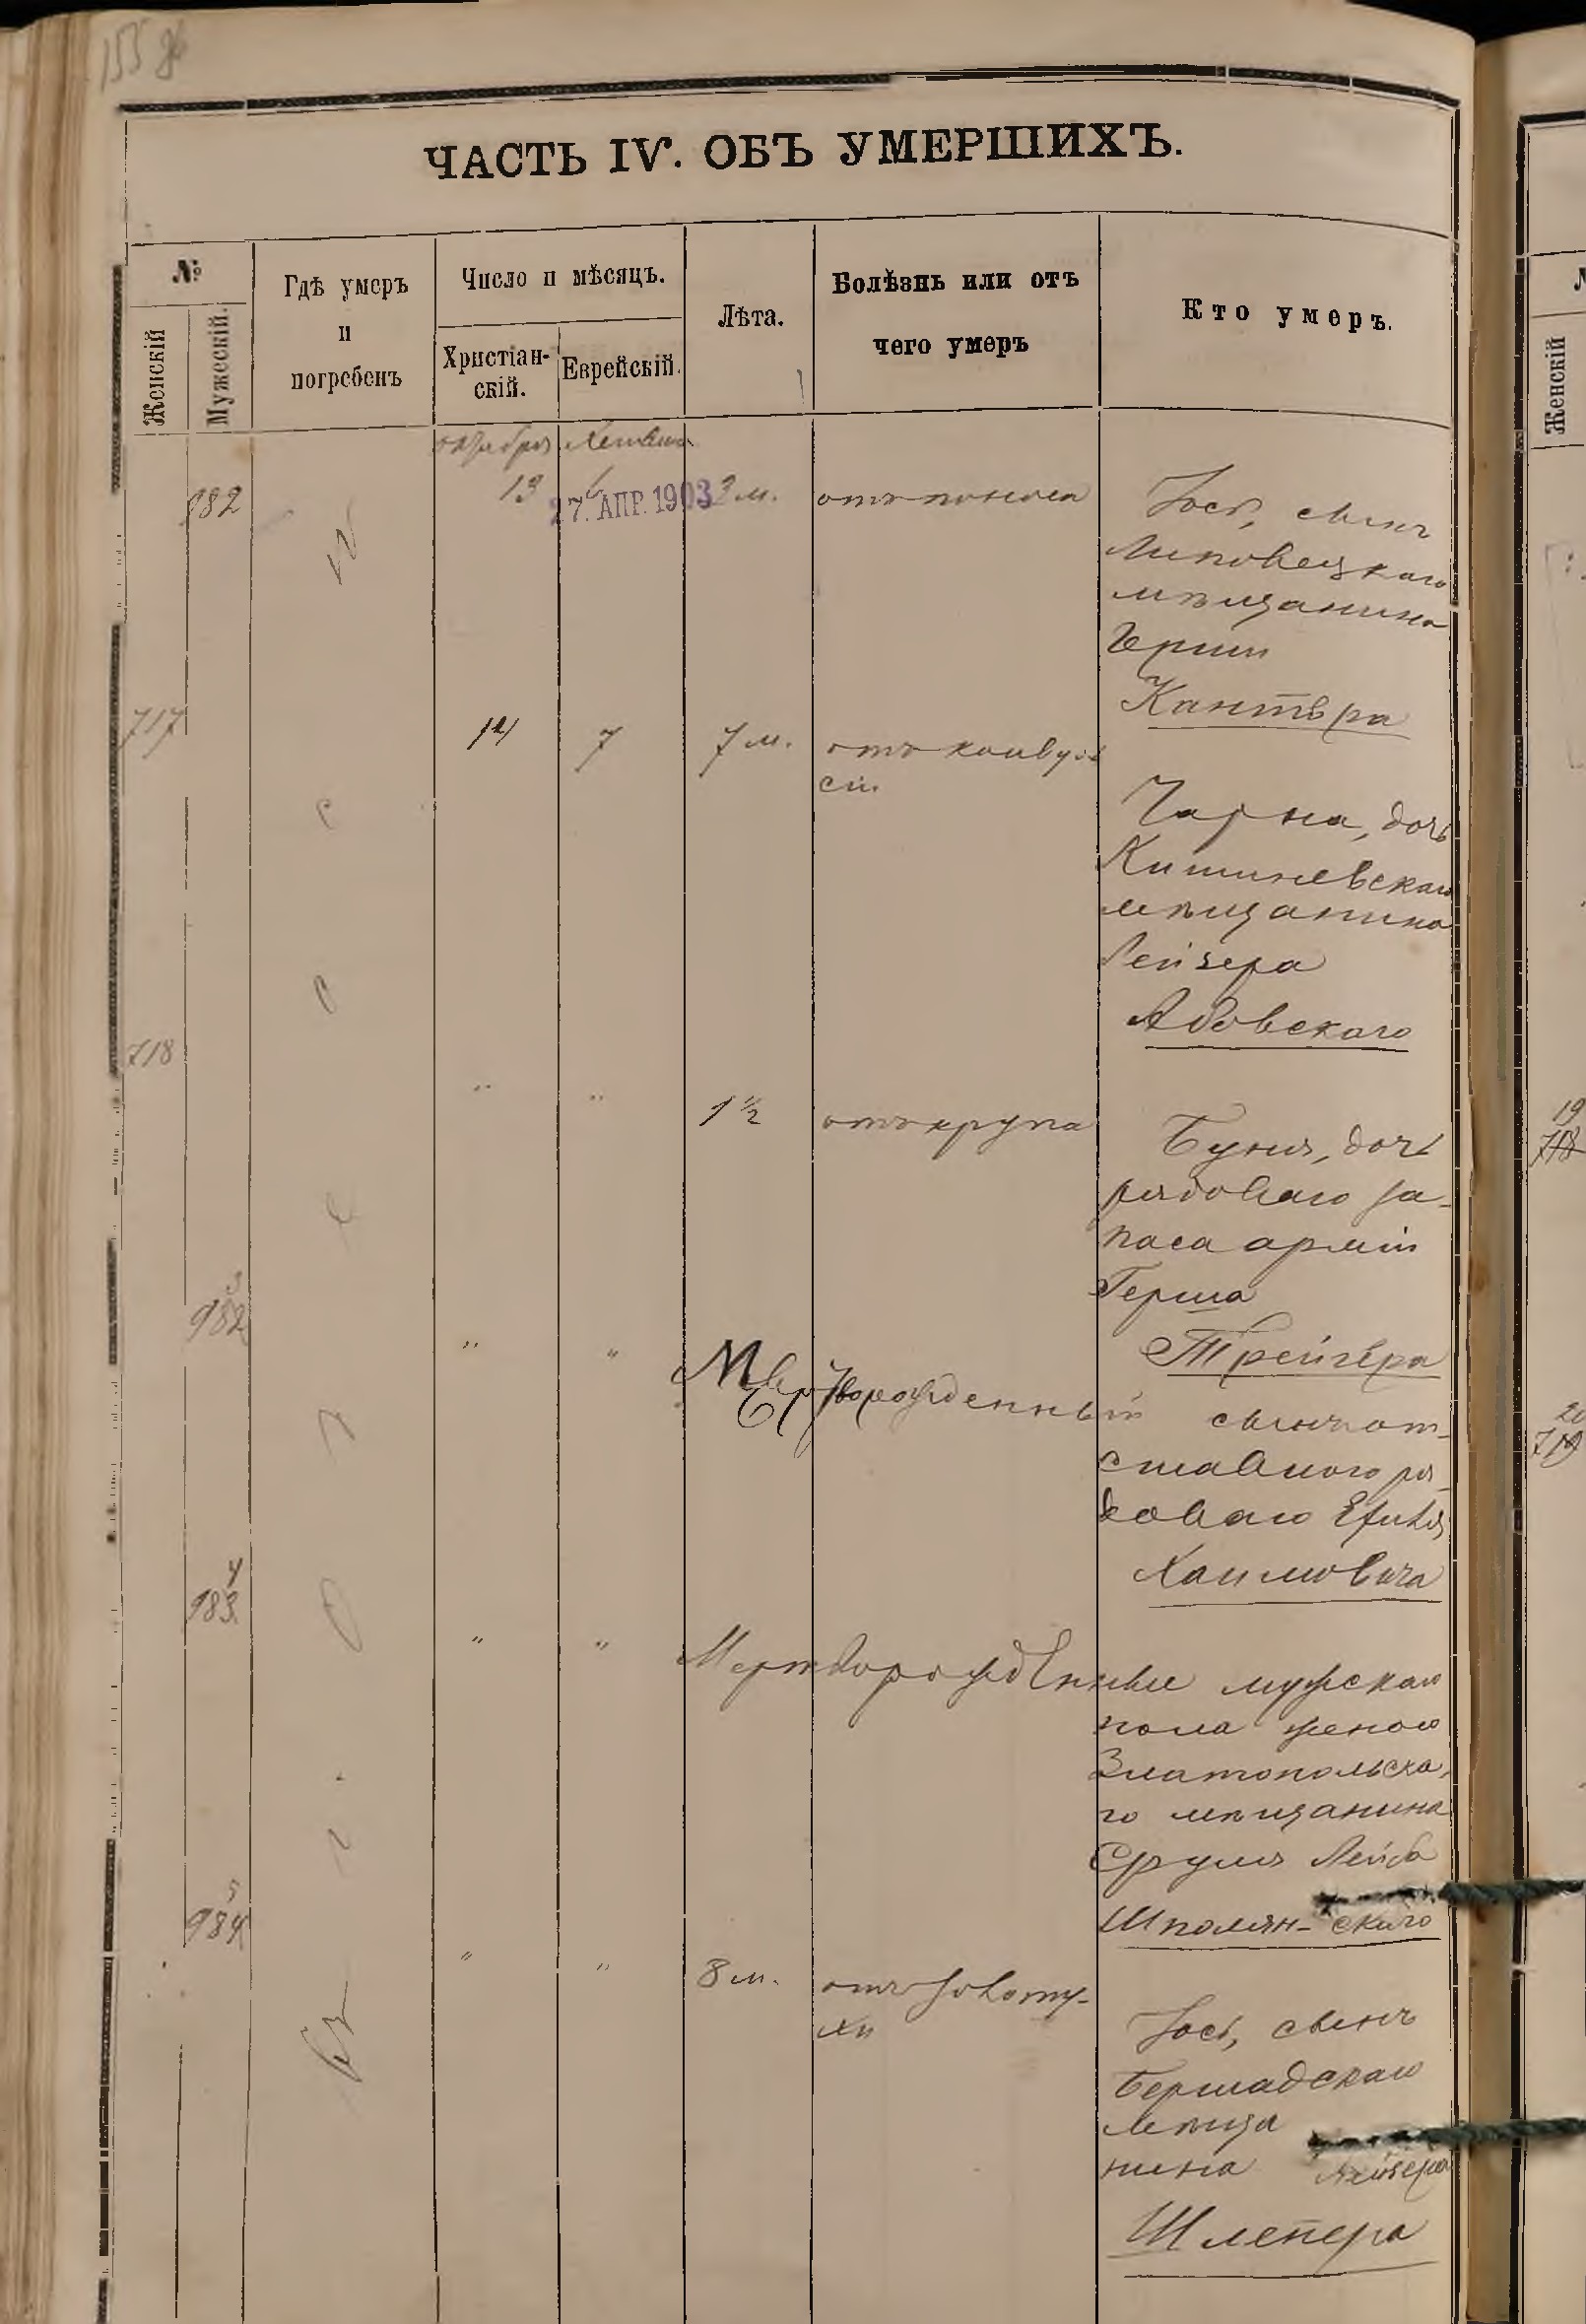 ЧАСТЬ IV. ОБЪ УМЕРШИХЪ.
№
Женскій
Мужескій.
Гдѣ умеръ
и
погребенъ
Число и мѣсяцъ.
Христіан-
скій.
Еврейскій.
Лѣта.
Болѣзнь или отъ
чего умеръ
Кто умеръ.
октября Хешвана
982
13
6
27. АПР. 1903
3 м.
отъ поноса
Іось, сынъ
Липовецкаго
мѣщанина
Герша
Кантора
717
14
7
7 м.
отъ конвуль
сіи.
Чарна, дочь
Кишиневскаго
мѣщанина
Лейзера
Абовскаго
718
"
"
1 1/2
отъ крупа
Буня, дочь
рядоваго за-
паса арміи
Герша
Трейгера
3
982
"
"
Мертворожденный сынъ от-
ставного ря-
доваго
Хаимовича
4
983
"
"
Мертворожденные мужскаго
пола женою
Златопольска-
го мѣщанина
Сруля Лейба
Шполян-скаго
5
984
"
"
8 м.
отъ золоту-
хи
Іось, сынъ
Бершадскаго
мѣща
нина Лейзера
Шлепера
Въ
Женскій
19
718
20
719